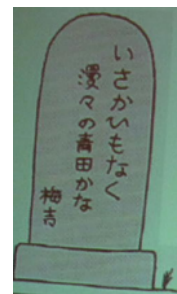 いさかいもなく
漫々の青田かな
梅吉